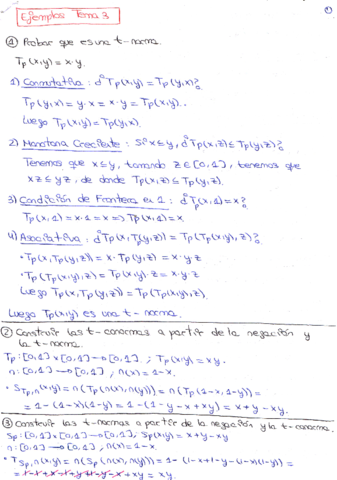 Ejemplos Tema 3
①
① Probar que es una t-norma
Tp(x,y) = x·y.
1) Conmutativa: ¿Tp(x,y) = Tp(y,x)?
Tp(y,x) = y·x = x·y = Tp(x,y).
Luego Tp(x,y) = Tp(y,x).
2) Monotona Creciente: Si x≤y, ¿Tp(x,z) ≤ Tp(y,z)?
Tenemos que x≤y, tomando z∈[0,1], tenemos que
xz ≤ yz, de donde Tp(x,z) ≤ Tp(y,z).
3) Condición de Frontera en 1: ¿Tp(x,1) = x?
Tp(x,1) = x·1 = x => Tp(x,1) = x.
4) Asociativa: ¿Tp(x,Tp(y,z)) = Tp(Tp(x,y),z)?
• Tp(x,Tp(y,z)) = x·Tp(y,z) = x·y·z
• Tp(Tp(x,y),z) = Tp(x,y)·z = x·y·z
Luego Tp(x,Tp(y,z)) = Tp(Tp(x,y),z).
Luego Tp(x,y) es una t-norma.
② Construir las t-conormas a partir de la negación y
la t-norma.
Tp: [0,1]x[0,1]→[0,1]; Tp(x,y) = xy.
n: [0,1]→[0,1], n(x) = 1-x.
• S Tp,n(x,y) = n(Tp(n(x),n(y))) = n(Tp(1-x,1-y)) =
= 1-(1-x)(1-y) = 1-(1-y-x+xy) = x+y-xy.
③ Construir las t-normas a partir de la negación y la t-conorma.
Sp: [0,1]x[0,1]→[0,1]; Sp(x,y) = x+y-xy
n: [0,1]→[0,1], n(x) = 1-x.
• T Sp,n(x,y) = n(Sp(n(x),n(y))) = 1-(1-x+1-y-(1-x)(1-y)) =
+xy = xy.